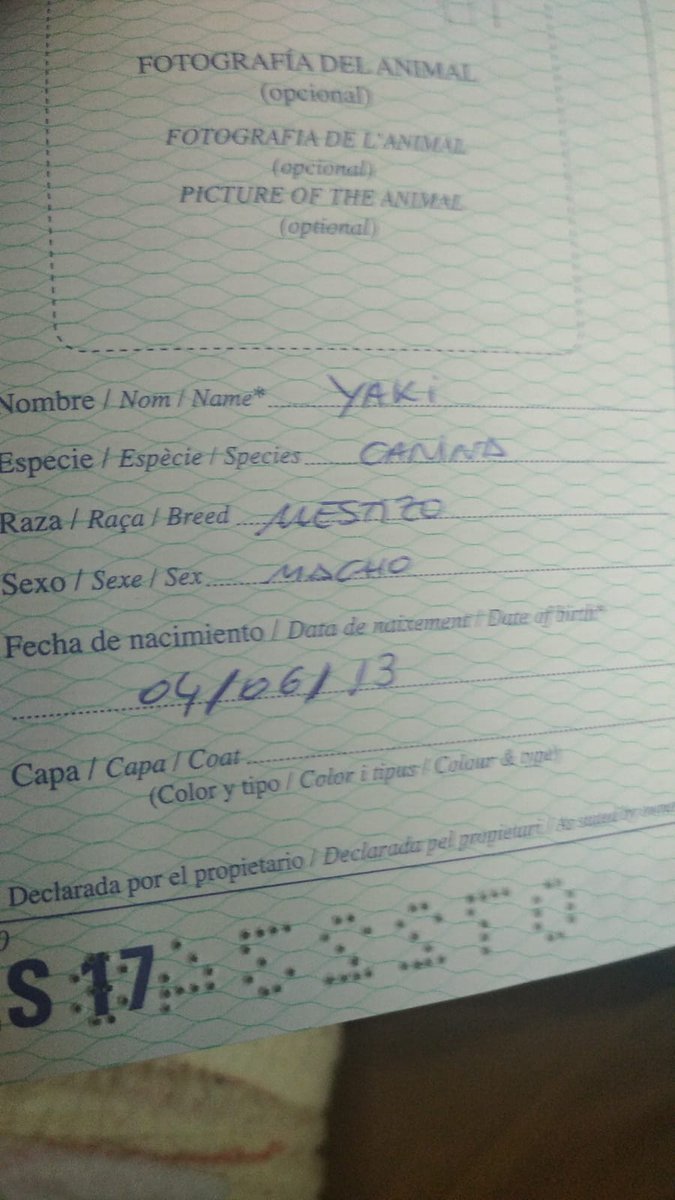 FOTOGRAFÍA DEL ANIMAL
(opcional)
FOTOGRAFIA DE L'ANIMAL
(opcional)
PICTURE OF THE ANIMAL
(optional)
Nombre / Nom / Name* YAKI
Especie / Espècie / Species CANINA
Raza / Raça / Breed MESTIZO
Sexo / Sexe / Sex MACHO
Fecha de nacimiento / Data de naixement / Date of birth*
04/06/13
Capa / Capa / Coat
(Color y tipo / Color i tipus / Colour & type)
Declarada por el propietario / Declarada pel propietari / As stated by
S 17